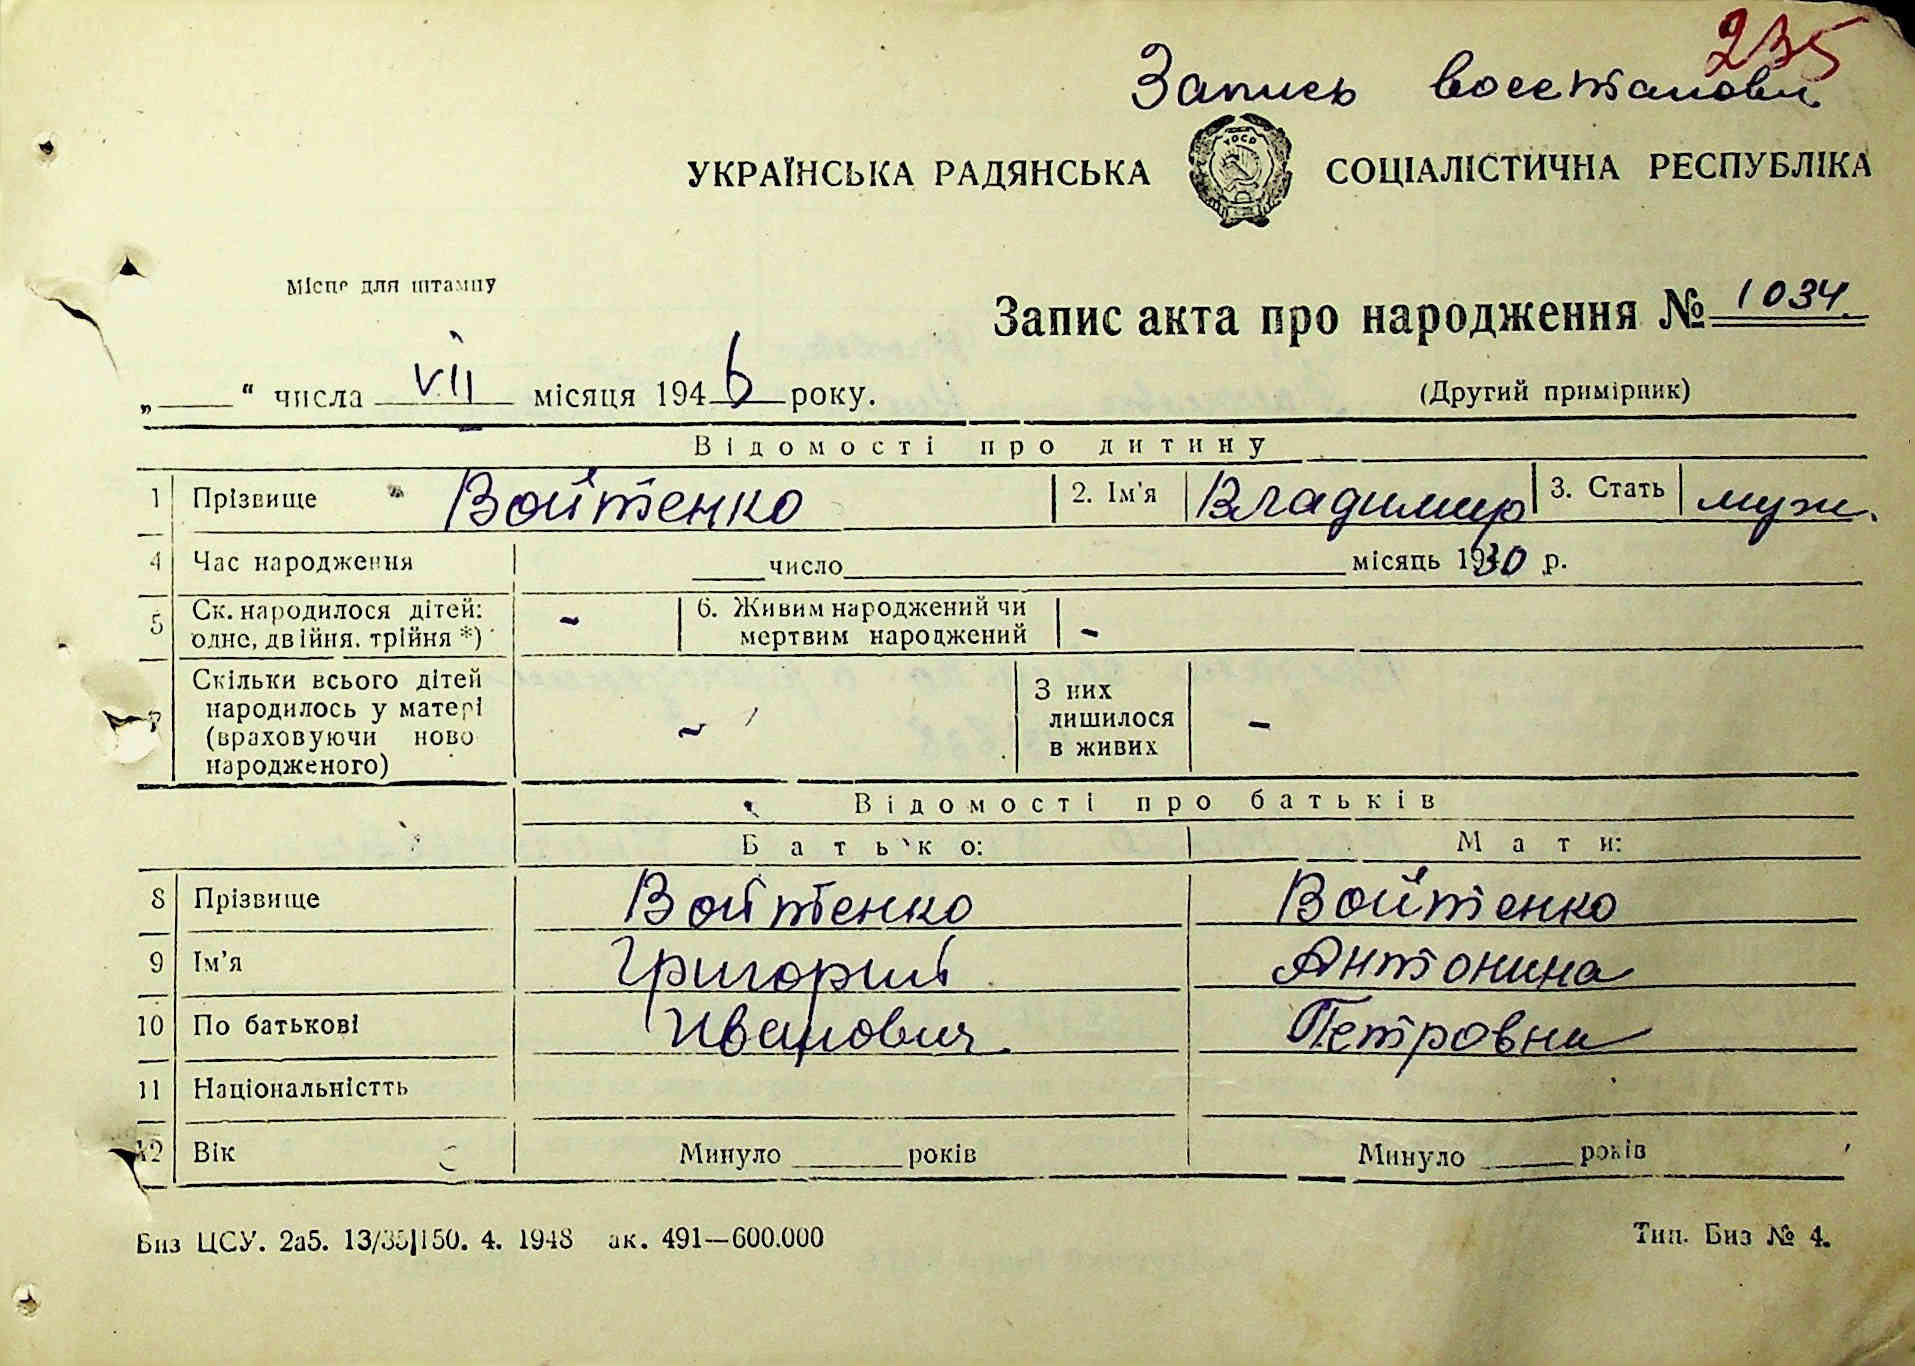 235
Запись восстановл
УКРАЇНСЬКА РАДЯНСЬКА СОЦІАЛІСТИЧНА РЕСПУБЛІКА
УОСР
Місце для штампу
Запис акта про народження № 1034.
„____“ числа VII місяця 1946 року.
(Другий примірник)
Відомості про дитину
1 Прізвище Войтенко 2. Ім'я Владимир 3. Стать муж.
4 Час народження ____число____ місяць 1930 р.
5 Ск. народилося дітей: одне, двійня, трійня *) - 6. Живим народжений чи мертвим народжений -
7 Скільки всього дітей народилось у матері (враховуючи ново народженого) ~ З них лишилося в живих -
Відомості про батьків
Батько: Мати:
8 Прізвище Войтенко Войтенко
9 Ім'я Григорий Антонина
10 По батькові Иванович Петровна
11 Національністть
12 Вік Минуло ____ років Минуло ____ років
Биз ЦСУ. 2а5. 13/35|150. 4. 1948 ак. 491—600.000 Тип. Биз № 4.